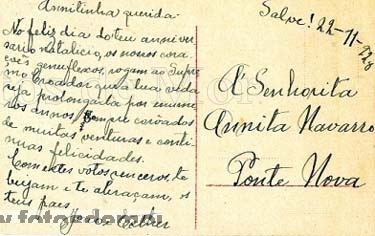 Annitinha querida.
No feliz dia do teu anniver
sario natalicio, os nossos cora
ções genuflexos, rogam ao Supre
mo Creador que a tua vida
seja prolongada por innume
ros annos, sempre coroados
de muitas venturas e conti
nuas felicidades.
Com estes votos sinceros, te
beijam e te abraçam, os
teus paes
José e Esther
Salve! 22-11-928
Á Senhorita
Annita Navarro
Ponte Nova